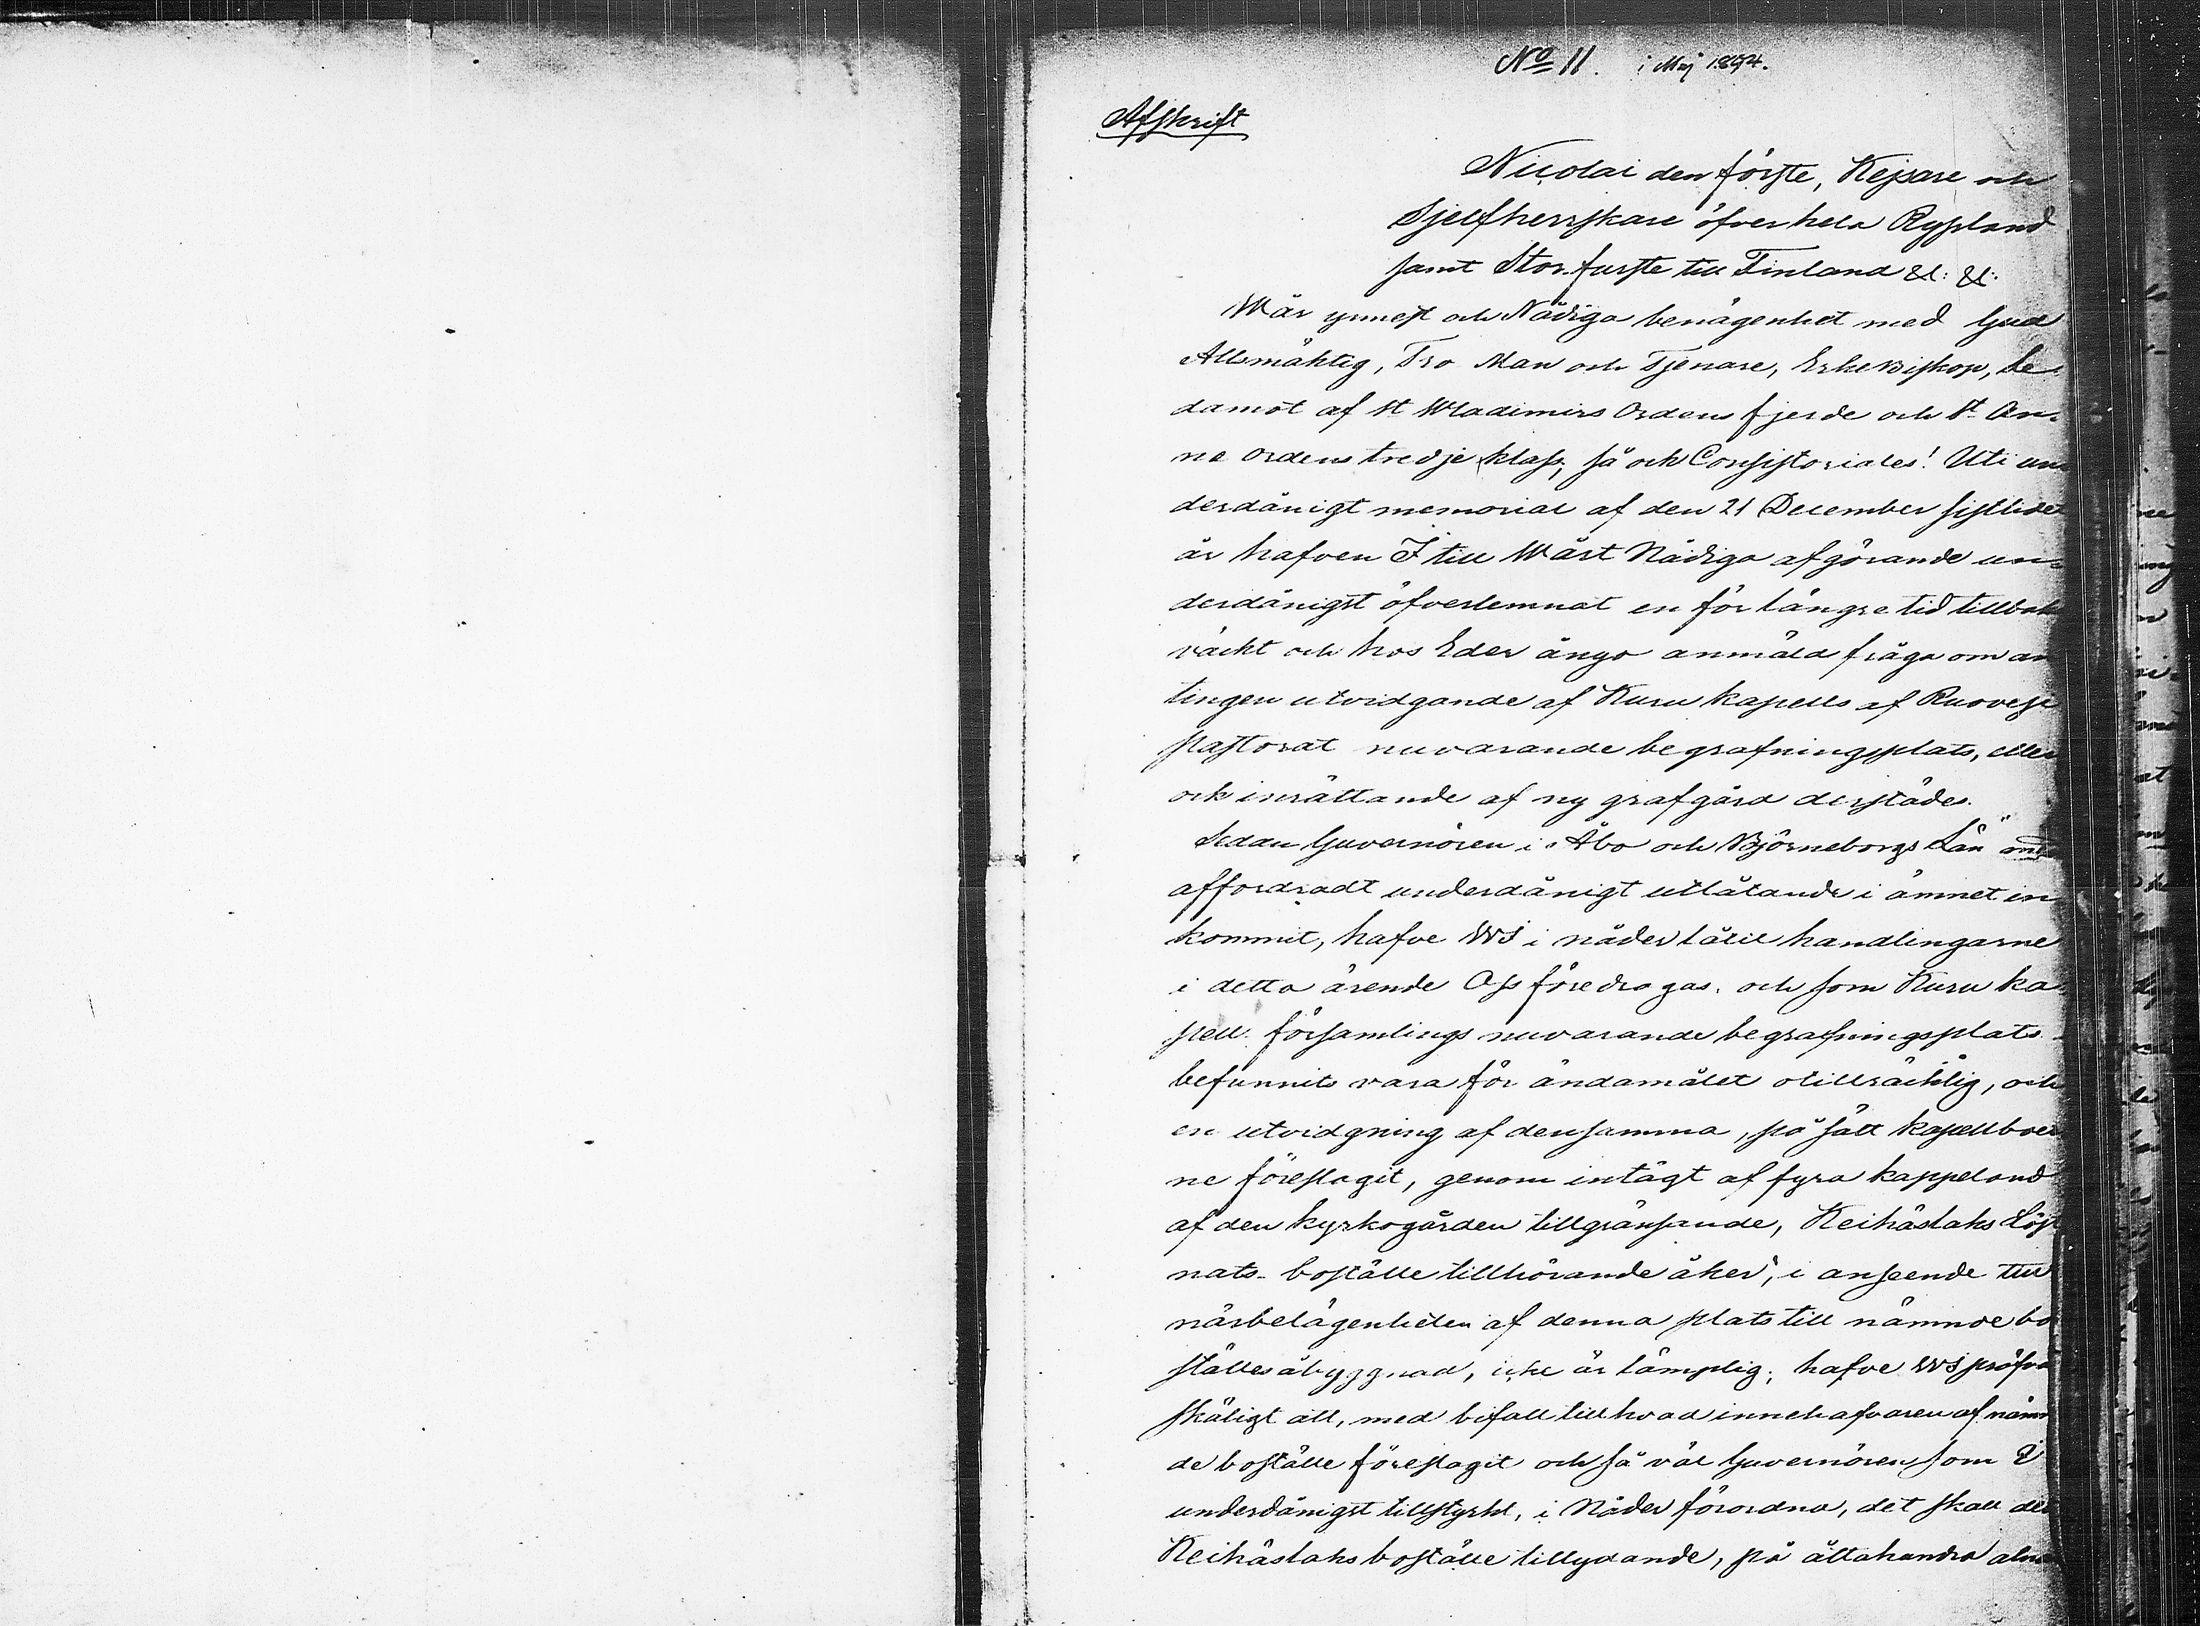 No 11. i Maj 1894.
Afskrift
Nicolai den förste, Kejsare och
Sjelfherrskare öfver hela Ryssland
samt Storfurste till Finland &c: &c:
Wår ynnest och Nådiga benägenhet med Gud
Allsmäktig, Tro Man och Tjenare, Erkebiskop, Le-
damot af St Wladimirs Ordens fjerde och St An-
na ordens tredje klass, så ock Consistoriales! Uti un-
derdånigt memorial af den 21 December sistlidet
år hafven I till Wårt Nådiga afgörande un-
derdånigst öfverlemnat en för längre tid tillbaka
väckt och hos Eder ånyo anmäld fråga om an-
tingen utvidgande af Kuru kapells af Ruovesi
pastorat nuvarande begrafningsplats, eller
ock inrättande af ny grafgård derstädes.
Sedan Guvernören i Åbo och Björneborgs Län
affordradt underdånigt utlåtande i ämnet in-
kommit, hafve Wi i nåder låtit handlingarne
i detta ärende Oss föredragas. och som Kuru ka-
pell församlings nuvarande begrafningsplats
befunnits vara för ändamålet otillräcklig, och
en utvidgning af densamma, på sätt kapellboer-
ne föreslagit, genom intägt af fyra kappeland
af den kyrkogården tillgränsande, Keihäslaks Löjt-
nats-boställe tillhörande åker, i anseende till
närbelägenheten af denna plats till nämnde bo-
ställes åbyggnad, icke är lämplig; hafve Wi pröfvat
skäligt att, med bifall till hvad innehafvaren af nämn-
de boställe föreslagit och så väl Guvernören som I
underdånigst tillstyrkt, i Nåder förordna, det skall det
Keihäslaks boställe tillydande, på åttahundra alnars